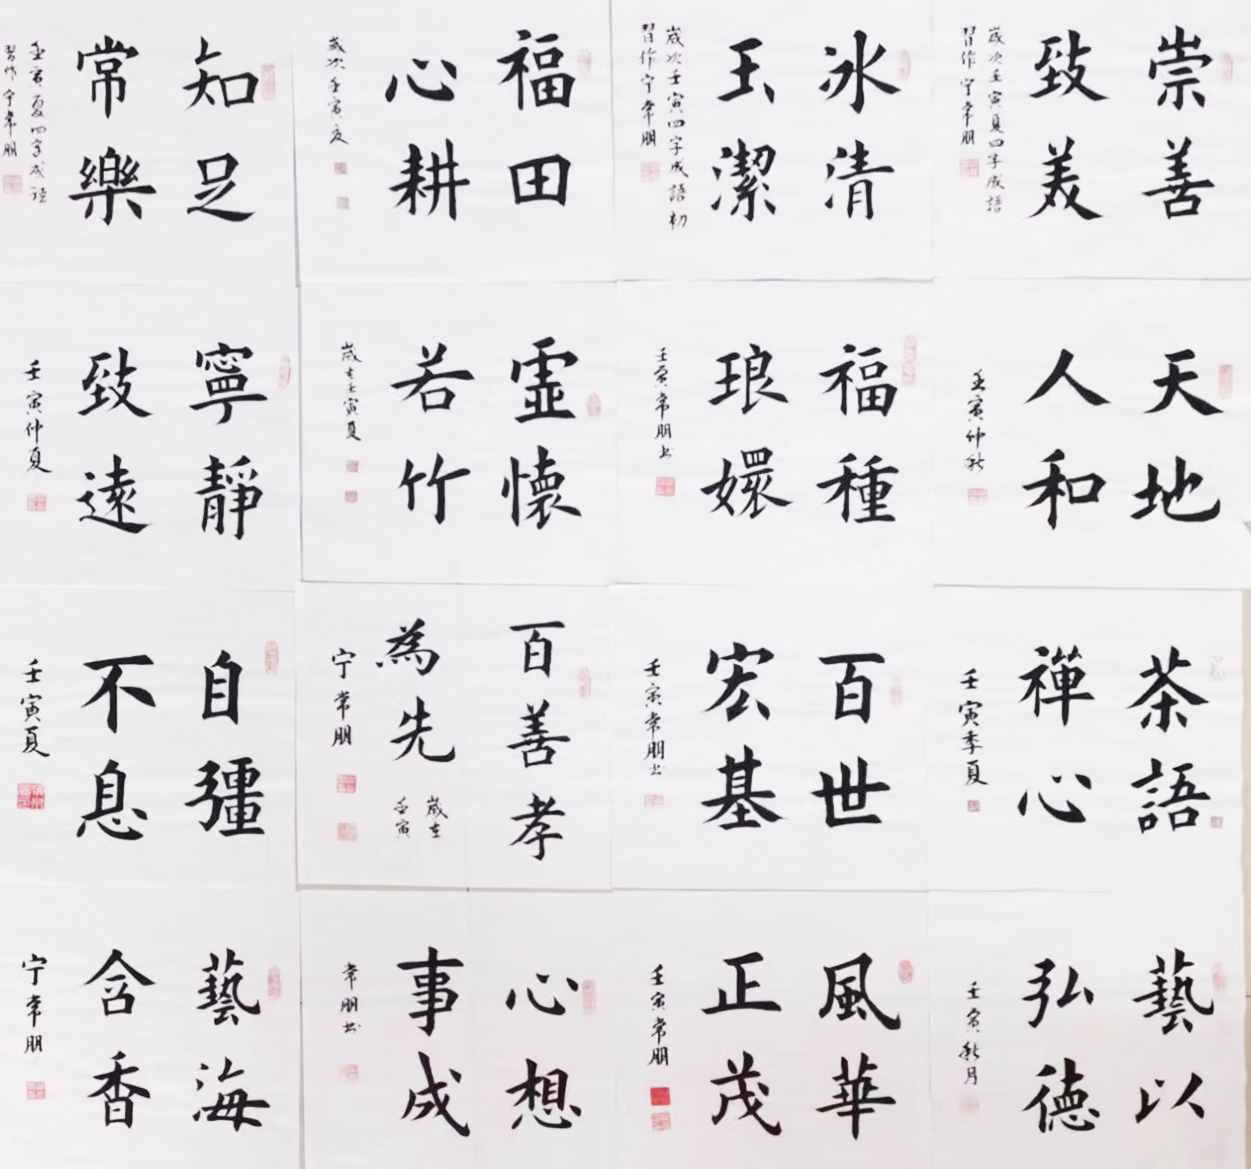 崇善
致美
歲次壬寅夏四字成語
習作宁常朋
冰清
玉潔
歲次壬寅四字成語初
習作宁常朋
福田
心耕
歲次壬寅夏
知足
常樂
壬寅夏四字成語
習作宁常朋
天地
人和
壬寅仲秋
福種
琅嬛
壬寅常朋书
霊懷
若竹
歲在壬寅夏
寧靜
致遠
壬寅仲夏
茶語
禪心
壬寅季夏
百世
宏基
壬寅常朋书
百善孝
為先
歲在
壬寅
宁常朋
自彊
不息
壬寅夏
藝以
弘德
壬寅秋月
風華
正茂
壬寅常朋
心想
事成
常朋书
藝海
含香
宁常朋